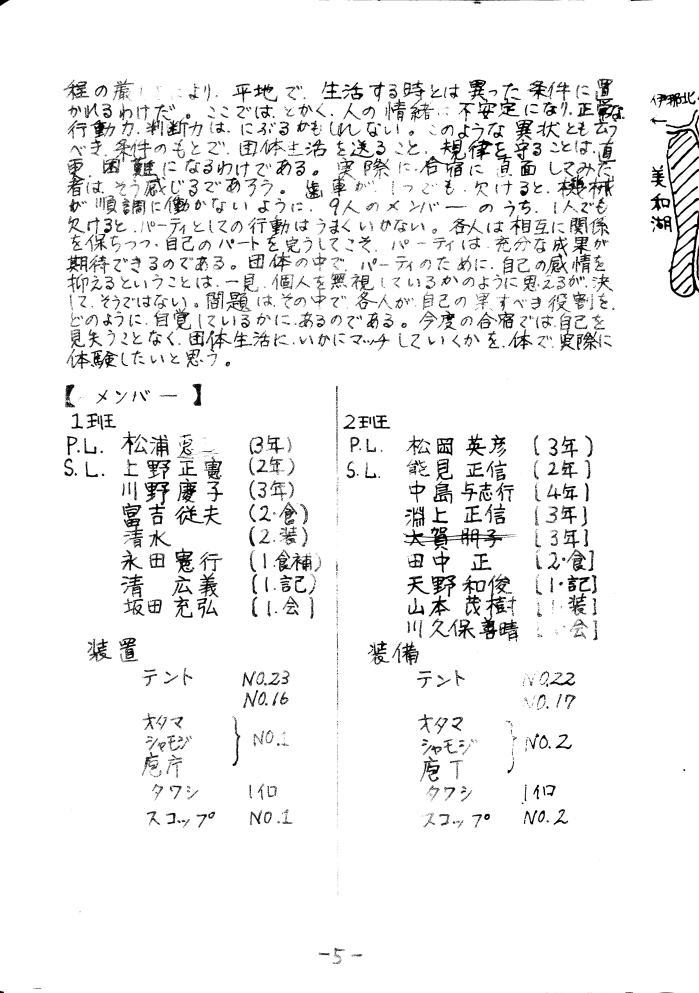 程の厳 により、平地で、生活する時とは異った条件に置
かれるわけだ。ここでは、とかく、人の情緒 不安定になり、正常な
行動力、判断力は、にぶるかもしれない。このような異状とも云う
べき条件のもとで、団体生活を送ること、規律を守ることは、直
更、困難になるわけである。実際に、合宿に直面してみた
者は、そう感じるであろう。歯車が、1つでも、欠けると、機械
が順調に働かないように、9人のメンバーのうち、1人でも
欠けると、パーティとしての行動はうまくいかない。各人は相互に関係
を保ちつつ、自己のパートを完うしてこそ、パーティは、充分な成果が
期待できるのである。団体の中で、パーティのために、自己の感情を
抑えるということは、一見、個人を無視しているかのように思えるが、決
して、そうではない。問題は、その中で、各人が、自己の果すべき役割を、
どのように、自覚しているかに、あるのである。今度の合宿では、自己を
見失うことなく、団体生活に、いかにマッチしていくかを、体で、実際に
体験したいと思う。
伊那北
美和湖
【メンバー】
1班
P.L. 松浦 (3年)
S.L. 上野正憲 (2年)
川野慶子 (3年)
富吉従夫 (2.食)
清水 (2.装)
永田憲行 (1.食補)
清 広義 (1.記)
坂田充弘 (1.会)
装置
テント NO.23
NO.16
オタマ
シャモジ NO.1
庖丁
タワシ 1イロ
スコップ NO.1
2班
P.L. 松岡英彦 (3年)
S.L. 能見正信 (2年)
中島与志行 (4年)
淵上正信 (3年)
大賀朋子 (3年)
田中 正 (2.食)
天野和俊 (1.記)
山本茂樹 (1.装)
川久保善晴 ( 会)
装備
テント NO.22
NO.17
オタマ
シャモジ NO.2
庖丁
タワシ 1イロ
スコップ NO.2
-5-